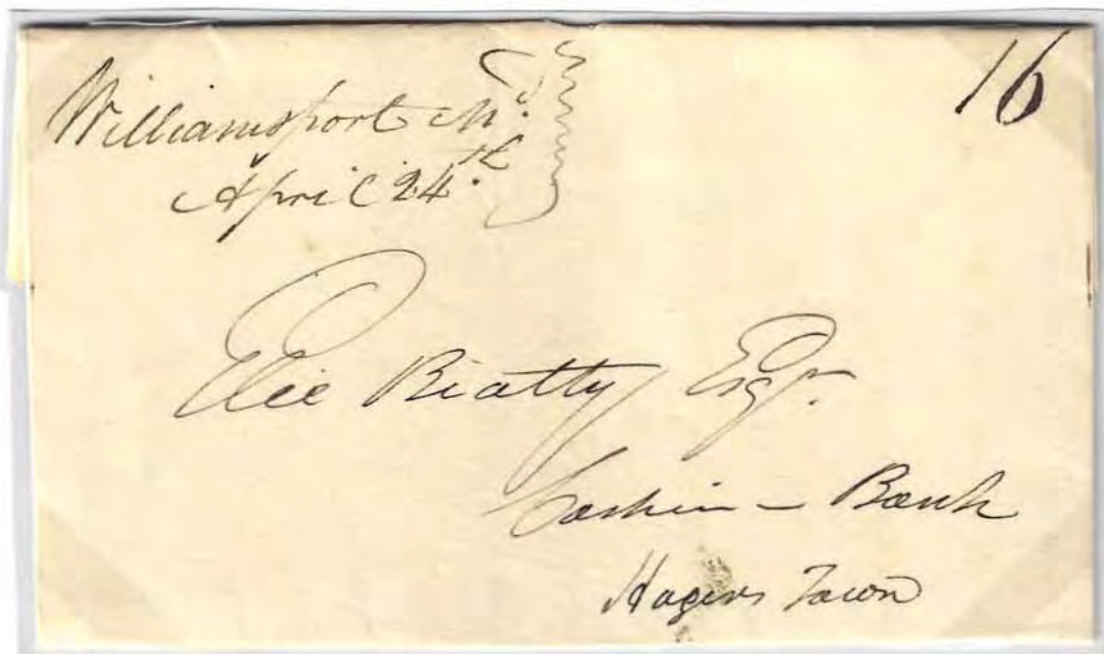 Williamsport Md.
16
April 24.th
Elie Beatty Esqr.
Cashier – Bank
Hagers Town